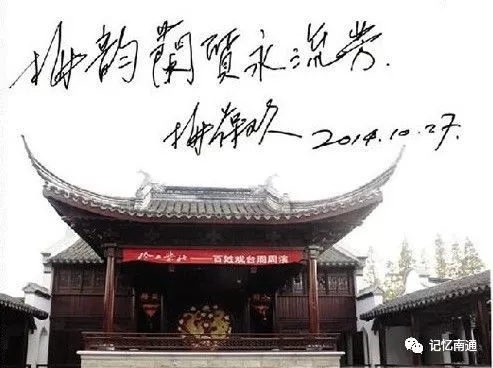 梅韵蘭质永流芳.
梅葆玖 2014.10.27.
伶工学社——百姓戏台周周演
记忆南通